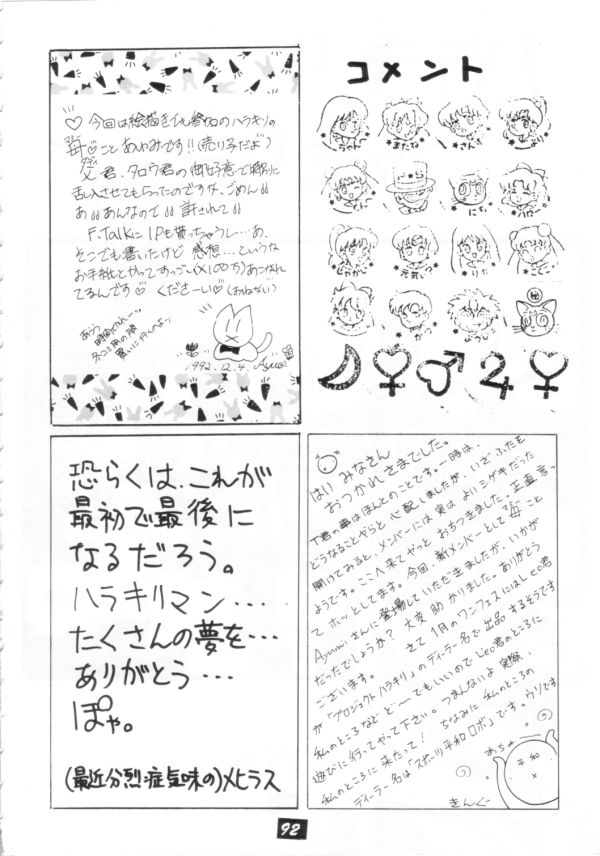 コメント
♡今回は絵描きでも参加のハラキリの
母♡ことあゆみです!!(売り子だよ)
父君、タロウ君の御好意で特別に
乱入させてもらったのですが、ごめん
あ あんなので 許されて
F.Talkに1Pも貰っちゃうし…あ、
そこでも書いたけど 感想…というな
お手紙とかやってすっごい(×100万)あこがれ
てるんです♡ くださーい♡(おねがい)
1992.12.4. Ayumi
またね
さんち
にち
元気いっつ
りた
恐らくは、これが
最初で最後に
なるだろう。
ハラキリマン…
たくさんの夢を…
ありがとう…
ぽや。
(最近分烈症気味の)メヒラス
はい みなさん
おつかれさまでした。
T君の事はほんとのことです。一時は、
どうなることやらと心配しましたが、いざふたを
開けてみると、メンバーには実はよいシゲキだった
ようです。ここへ来てやっとおちつきました。正直言っ
て ホッとしてます。今回 新メンバーとして 母こと
Ayumiさんに登場していただきましたが、いかが
だったでしょうか? 大変助かりました。ありがとう
ございます。 さて1月のワンフェスにはLeo君
が「プロジェクトハラキリ」のディーラー名で出品するそうです
私のところなどど〜でもいいのでLeo君のところに
遊びに行ってやって下さい。つまんないよ実際
私のところに来たって! ちなみに私のところの
ディーラー名は「スポーツ平和ロボ」です。ウソです
あちゅ〜
平和
きんぐ
92